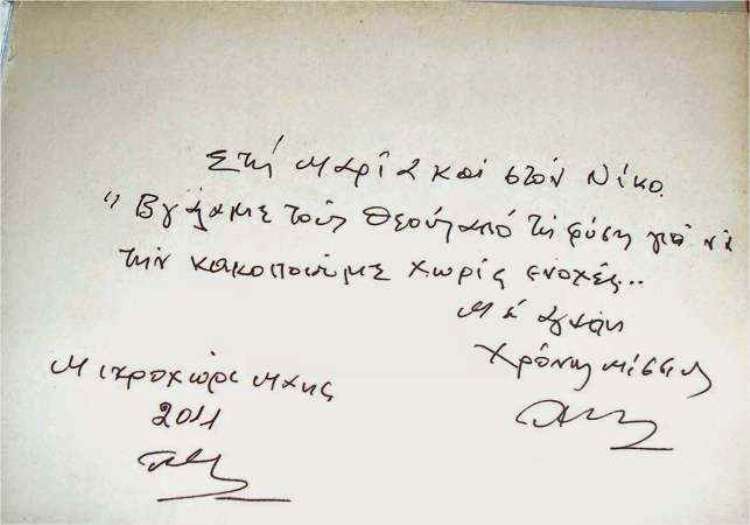 Στή Μαρία καί στόν Νίκο.
"Βγάλαμε τούς θεούς από τή φύση γιά νά
τήν κακοποιούμε χωρίς ενοχές...
Μέ αγάπη
Χρόνης Μίσσιος
Μικροχώρι
2011